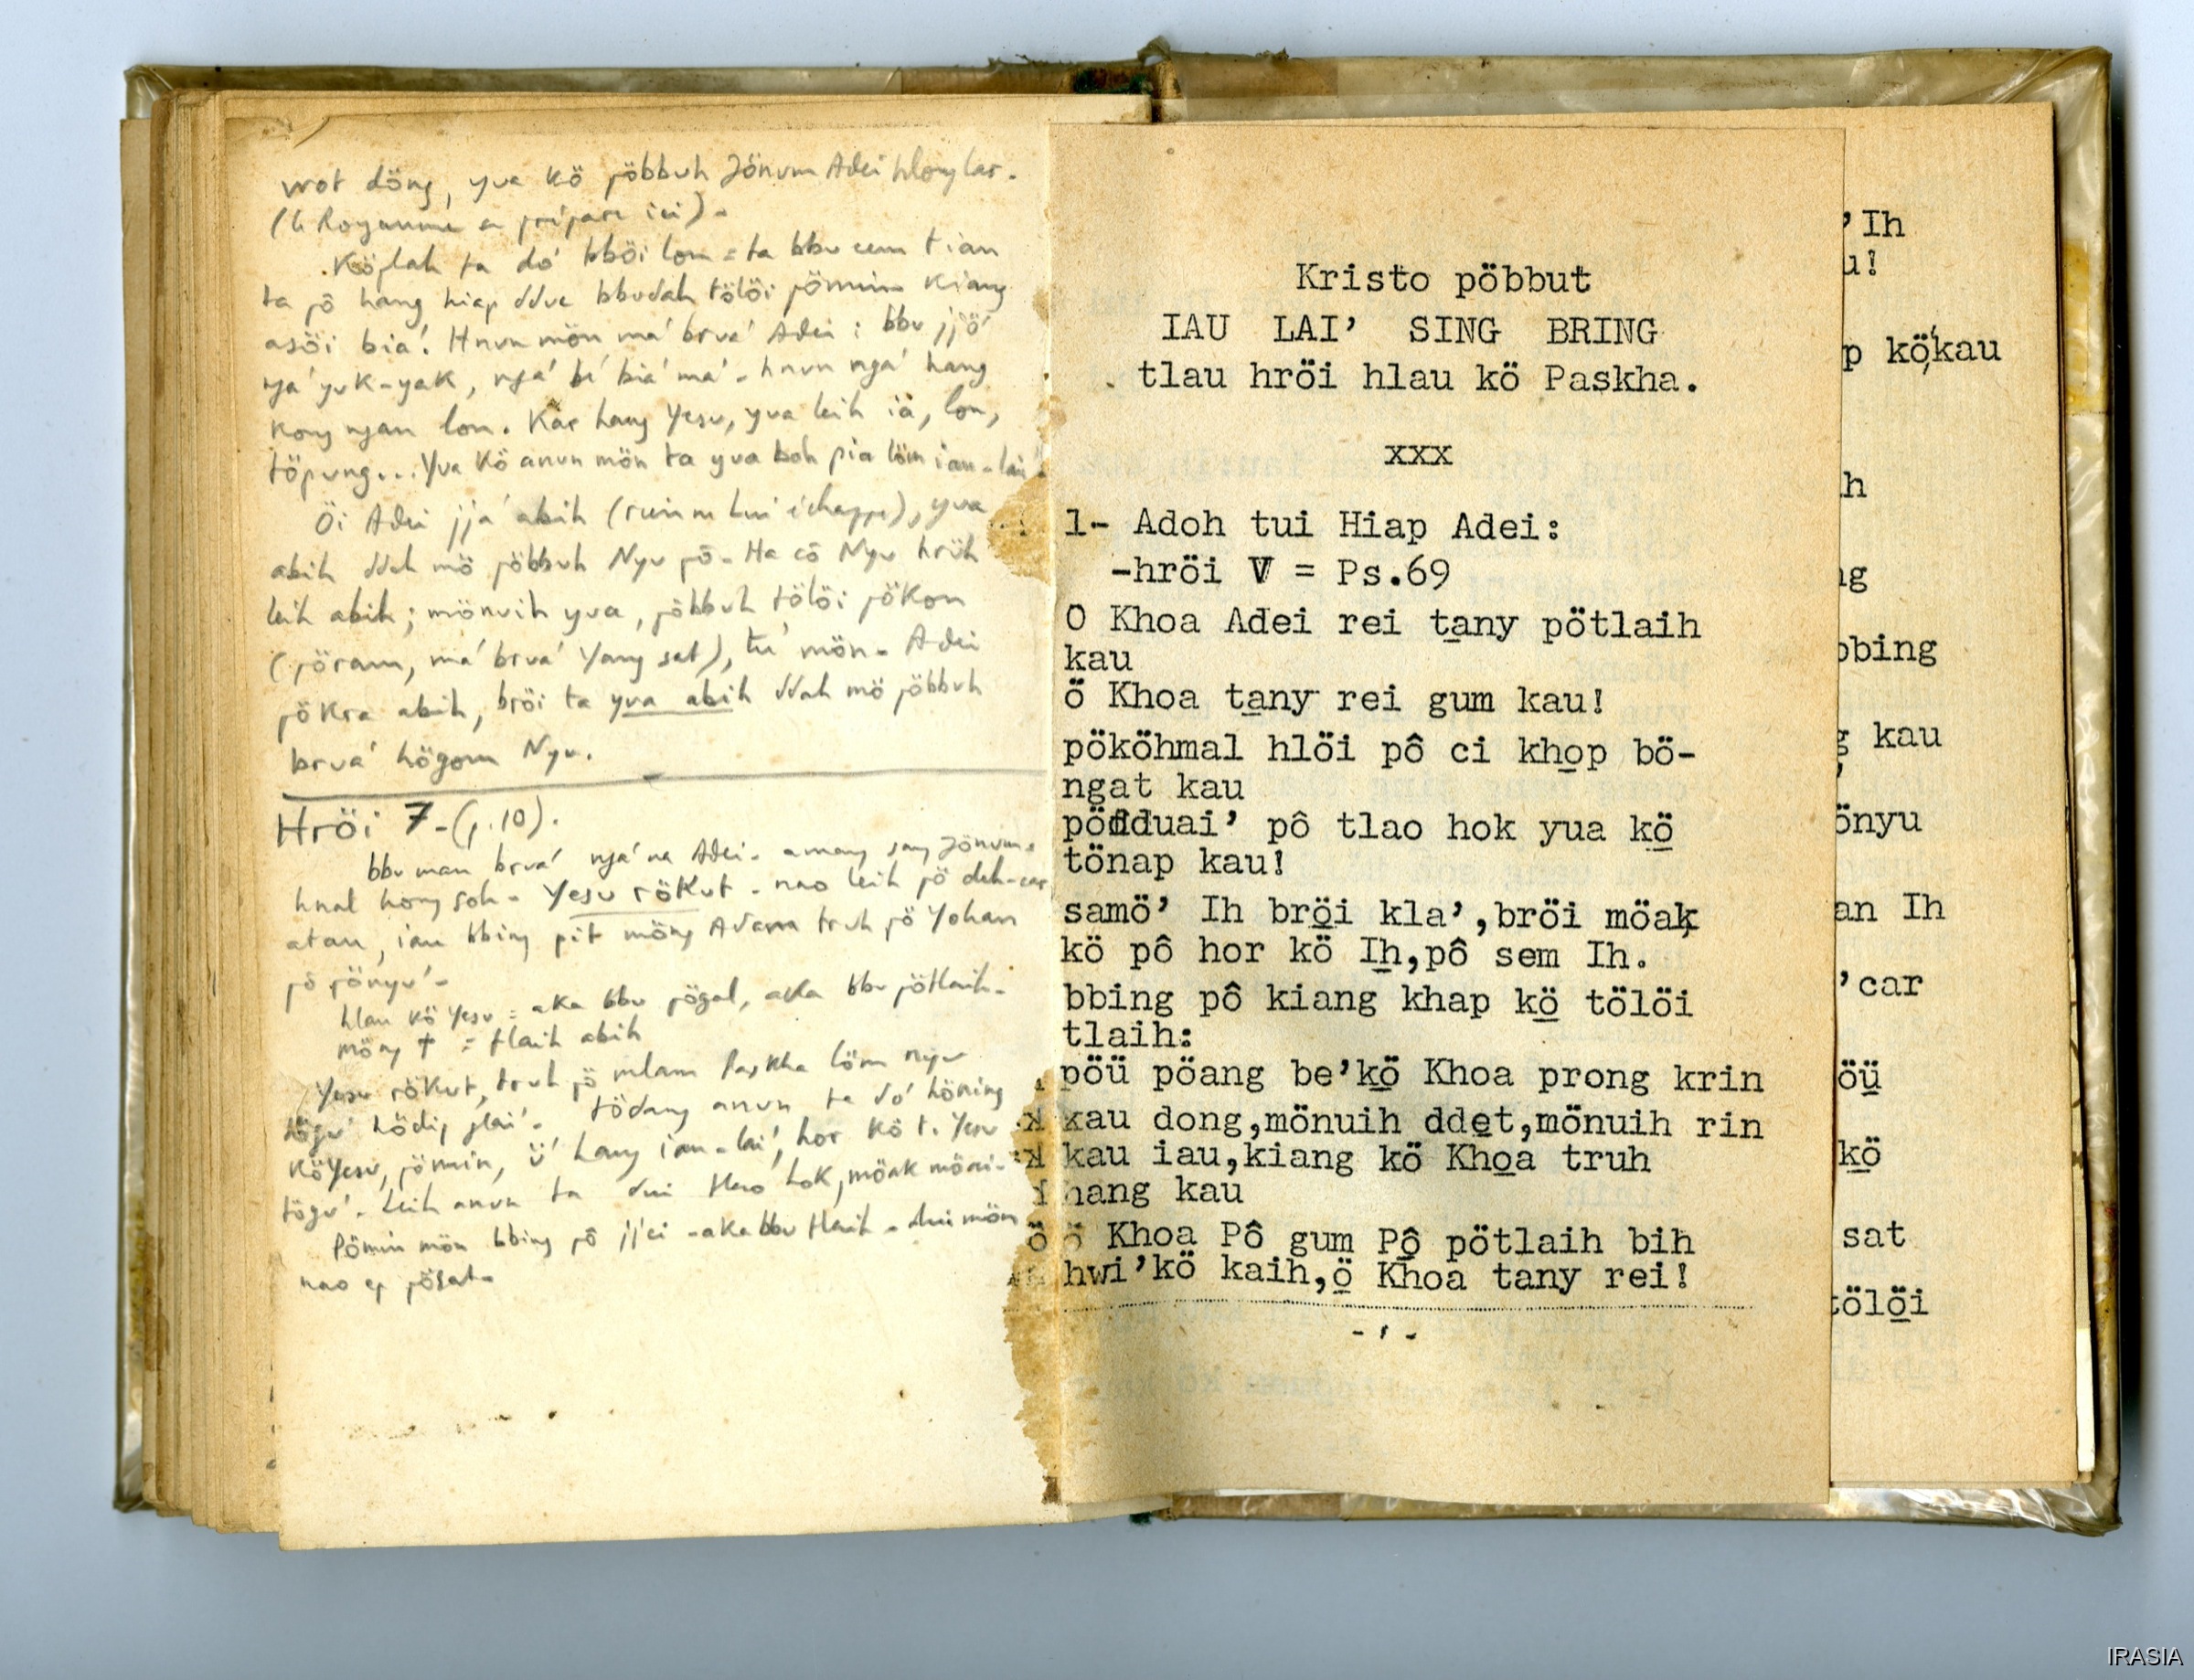 wot döng, yua kö pöbbuh Jönum Adei hlong lar.
(le Royaume se prépare ici).
Köplah ta do' bböi lon = ta bbu cem tian
ta pô hang hiap ddue bbudah tölöi pömin kiang
asöi bia'. Hnun mön ma' brua' Adei : bbu jjö'
nga' yuk-yak, nga' bi' bia' ma'. hnun nga' hang
kong ngan lon. Kar hang Yesu, yua leih ia, lon,
töpung... Yua kö anun mön ta yua boh pia löm iau-lai'.
Öi Adei jja' abih (rien ne lui échappe), yua
abih ddah mö pöbbuh Nyu pô. Ha cô Nyu hrüh
leih abih; mönuih yua, pöbbuh tölöi pökon
(pöram, ma' brua' Yang sat), tu' mön. Adei
pökra abih, bröi ta yua abih ddah mö pöbbuh
brua' högom Nyu.
Hröi 7-(p.10).
bbu man brua' nga' na Adei. amang sang Jönum.
hnal hong soh. Yesu rökut. nao leih pö deh-car
atau, iau bbing pit möng Adam truh pö Yohan
pô pönyu'.
hlau kö Yesu = aka bbu pögal, aka bbu pötlaih.
möng † = tlaih abih
Yesu rökut, truh pö mlam Paskha löm nyu
tögu' hödip glai'. tödang anun ta do' höning
kö Yesu, pömin, ü' hang iau-lai', hor kö t. Yesu
tögu'. Leih anun ta dui tlao hok, möak mönai.
Pömin mön bbing pô jj'ei - aka bbu tlaih - dui mön
nao ep pösat.
Kristo pöbbut
IAU LAI' SING BRING
tlau hröi hlau kö Paskha.
xxx
1- Adoh tui Hiap Adei:
-hröi V = Ps.69
O Khoa Adei rei tany pötlaih
kau
ö Khoa tany rei gum kau!
pököhmal hlöi pô ci khop bö-
ngat kau
pödduai' pô tlao hok yua kö
tönap kau!
samö' Ih bröi kla',bröi möak
kö pô hor kö Ih,pô sem Ih.
bbing pô kiang khap kö tölöi
tlaih:
pöü pöang be'kö Khoa prong krin
kau dong,mönuih ddet,mönuih rin
kau iau,kiang kö Khoa truh
hang kau
ö Khoa Pô gum Pô pötlaih bih
hwi'kö kaih,ö Khoa tany rei!
-'-
'Ih
u!
p kö'kau
h
ng
bbing
g kau
önyu
an Ih
'car
öü
kö
sat
tölöi
IRASIA